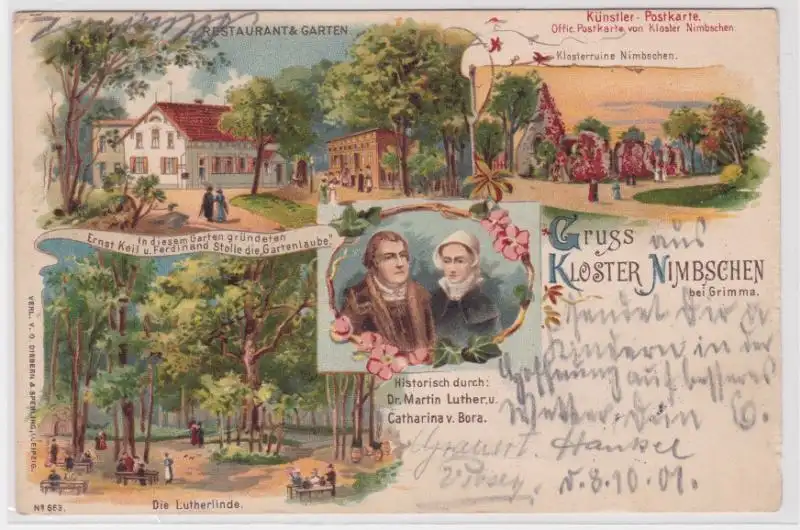 RESTAURANT & GARTEN
Künstler-Postkarte.
Offic. Postkarte von Kloster Nimbschen
Klosterruine Nimbschen.
In diesem Garten gründeten
Ernst Keil u. Ferdinand Stolle die „Gartenlaube."
Gruss aus
Kloster Nimbschen
bei Grimma.
sendet Dir u
Kindern in der
Hoffnung auf besseres
Wetter Dein E.
Historisch durch:
Dr. Martin Luther, u.
Catharina v. Bora.
d. 8.10.01.
Die Lutherlinde.
VERL. V. O. DIEBERN & SPERLING, LEIPZIG.
No 663.